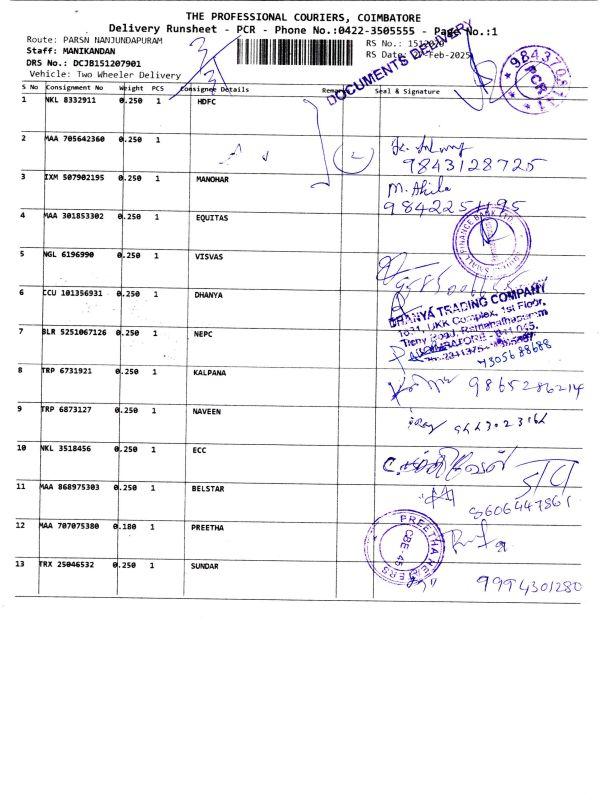 THE PROFESSIONAL COURIERS, COIMBATORE
Delivery Runsheet - PCR - Phone No.:0422-3505555 - Page No.:1
Route: PARSN NANJUNDAPURAM
RS No.:
Staff: MANIKANDAN
RS Date: Feb-2025
DRS No.: DCJB151207901
Vehicle: Two Wheeler Delivery
DOCUMENTS DELIVERY
PCR
S No Consignment No Weight PCS Consignee Details Remarks Seal & Signature
1 NKL 8332911 0.250 1 HDFC
2 MAA 705642360 0.250 1
9843128725
3 IXM 507902195 0.250 1 MANOHAR
M. Akila
4 MAA 301853302 0.250 1 EQUITAS
SMALL FINANCE BANK LTD
5 NGL 6196990 0.250 1 VISVAS
6 CCU 101356931 0.250 1 DHANYA
DHANYA TRADING COMPANY
1st Floor,
7 BLR 5251067126 0.250 1 NEPC
Trichy Road, Ramanathapuram
COIMBATORE - 641 045.
73056 88688
8 TRP 6731921 0.250 1 KALPANA
9865286214
9 TRP 6873127 0.250 1 NAVEEN
10 NKL 3518456 0.250 1 ECC
11 MAA 868975303 0.250 1 BELSTAR
8606447861
12 MAA 707075380 0.180 1 PREETHA
PREETHA
CBE-45
13 TRX 25046532 0.250 1 SUNDAR
9994301280